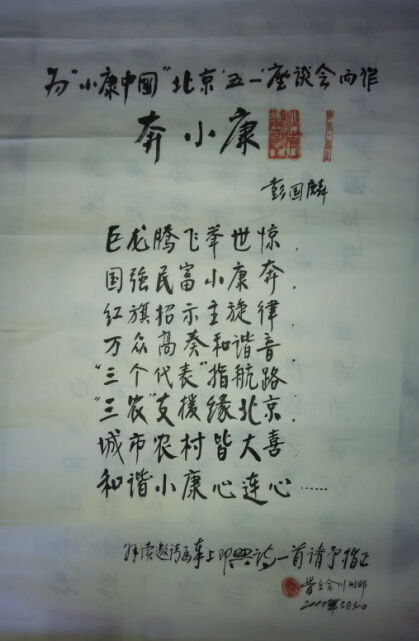 为“小康中國”北京“五一”座谈会而作
奔小康
彭国麟
巨龙腾飞举世惊，
国强民富小康奔。
红旗招示主旋律，
万众高奏和谐音。
“三个代表”指航路，
“三农”支援缘北京。
城市农村皆大喜，
和谐小康心连心……
拜读邀请函事上即興诗一首请予指正